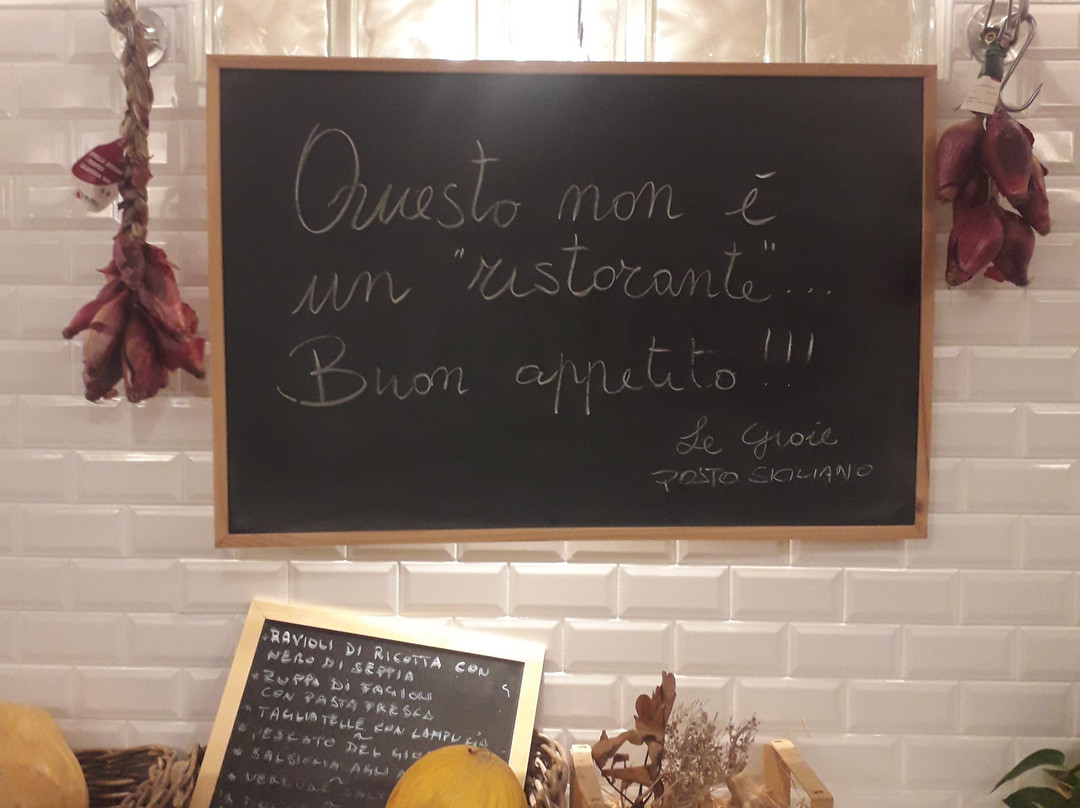 Questo non é
un "ristorante"...
Buon appetito !!!
Le Gioie
POSTO SICILIANO
*RAVIOLI DI RICOTTA CON
NERO DI SEPPIA
*ZUPPA DI FAGIOLI
CON PASTA FRESCA
*TAGLIATELLE CON LAMPUGA
~
*PESCATO DEL GIO
*SALSICCIA AGLI
~
*VERDURE